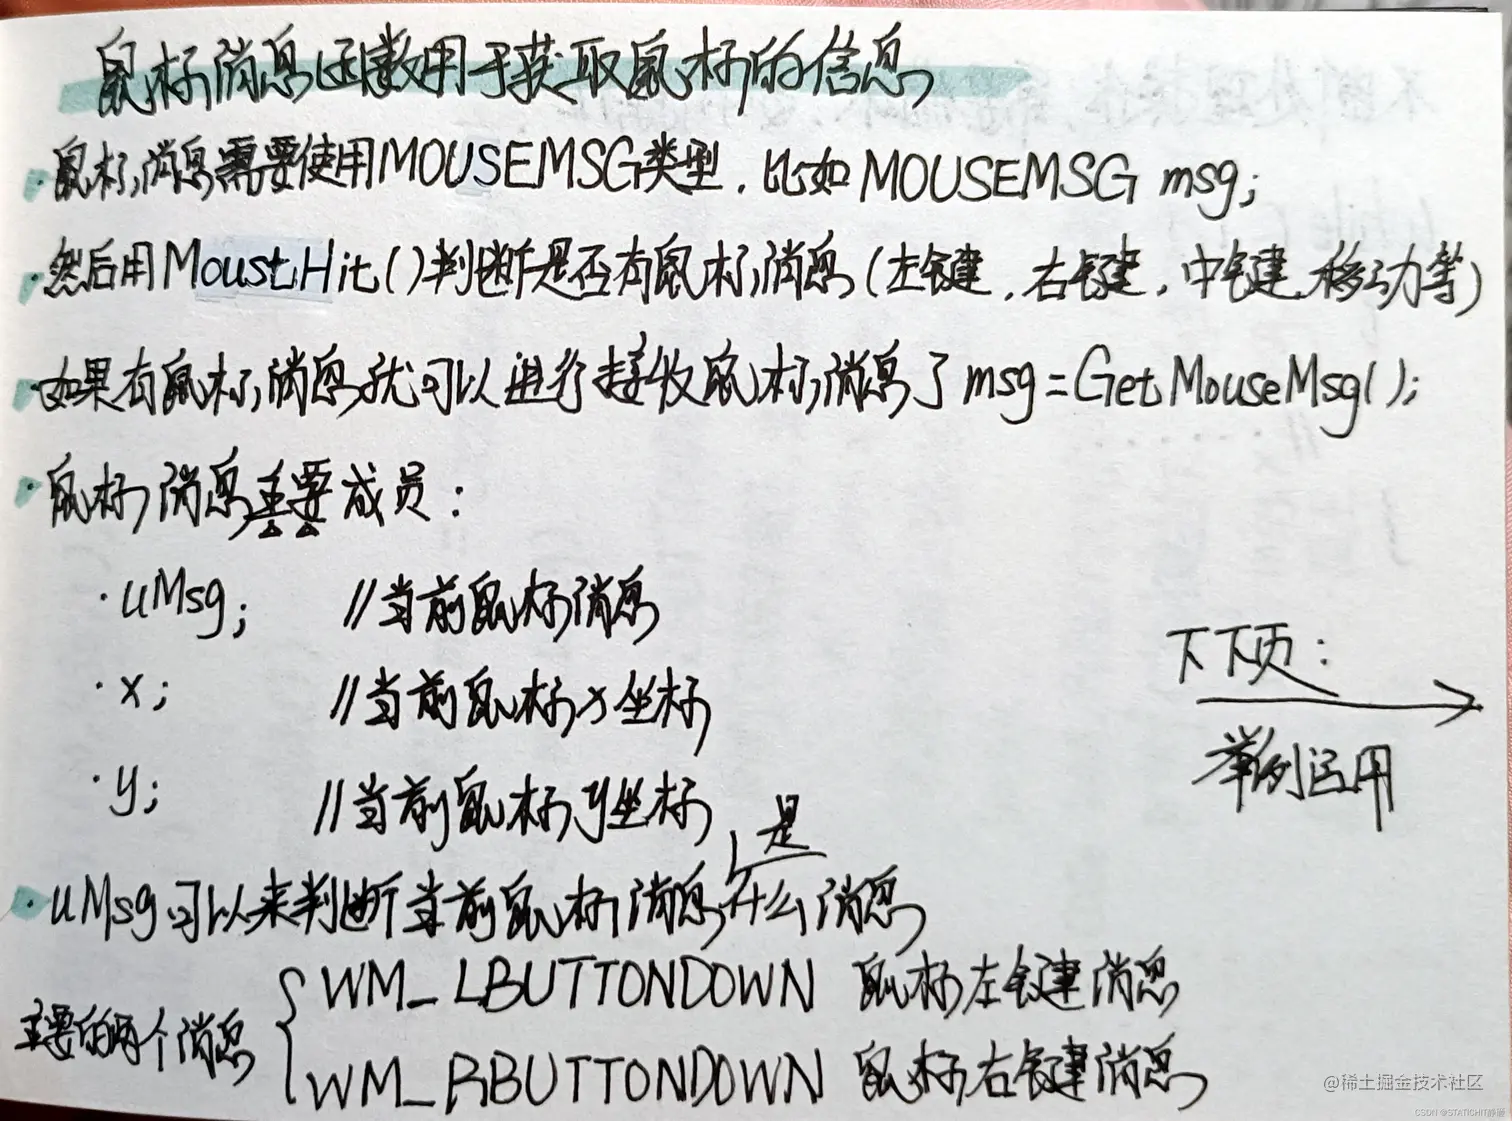 鼠标消息函数用于获取鼠标的信息
·鼠标消息需要使用MOUSEMSG类型，比如MOUSEMSG msg;
·然后用MoustHit()判断是否有鼠标消息(左键，右键，中键，移动等)
·如果有鼠标消息就可以进行接收鼠标消息了msg=GetMouseMsg();
·鼠标消息主要成员：
·uMsg; //当前鼠标消息
·x; //当前鼠标x坐标
·y; //当前鼠标y坐标
下下页：
举例运用
·uMsg可以来判断当前鼠标消息是什么消息
主要的两个消息
WM_LBUTTONDOWN 鼠标左键消息
WM_RBUTTONDOWN 鼠标右键消息
@稀土掘金技术社区